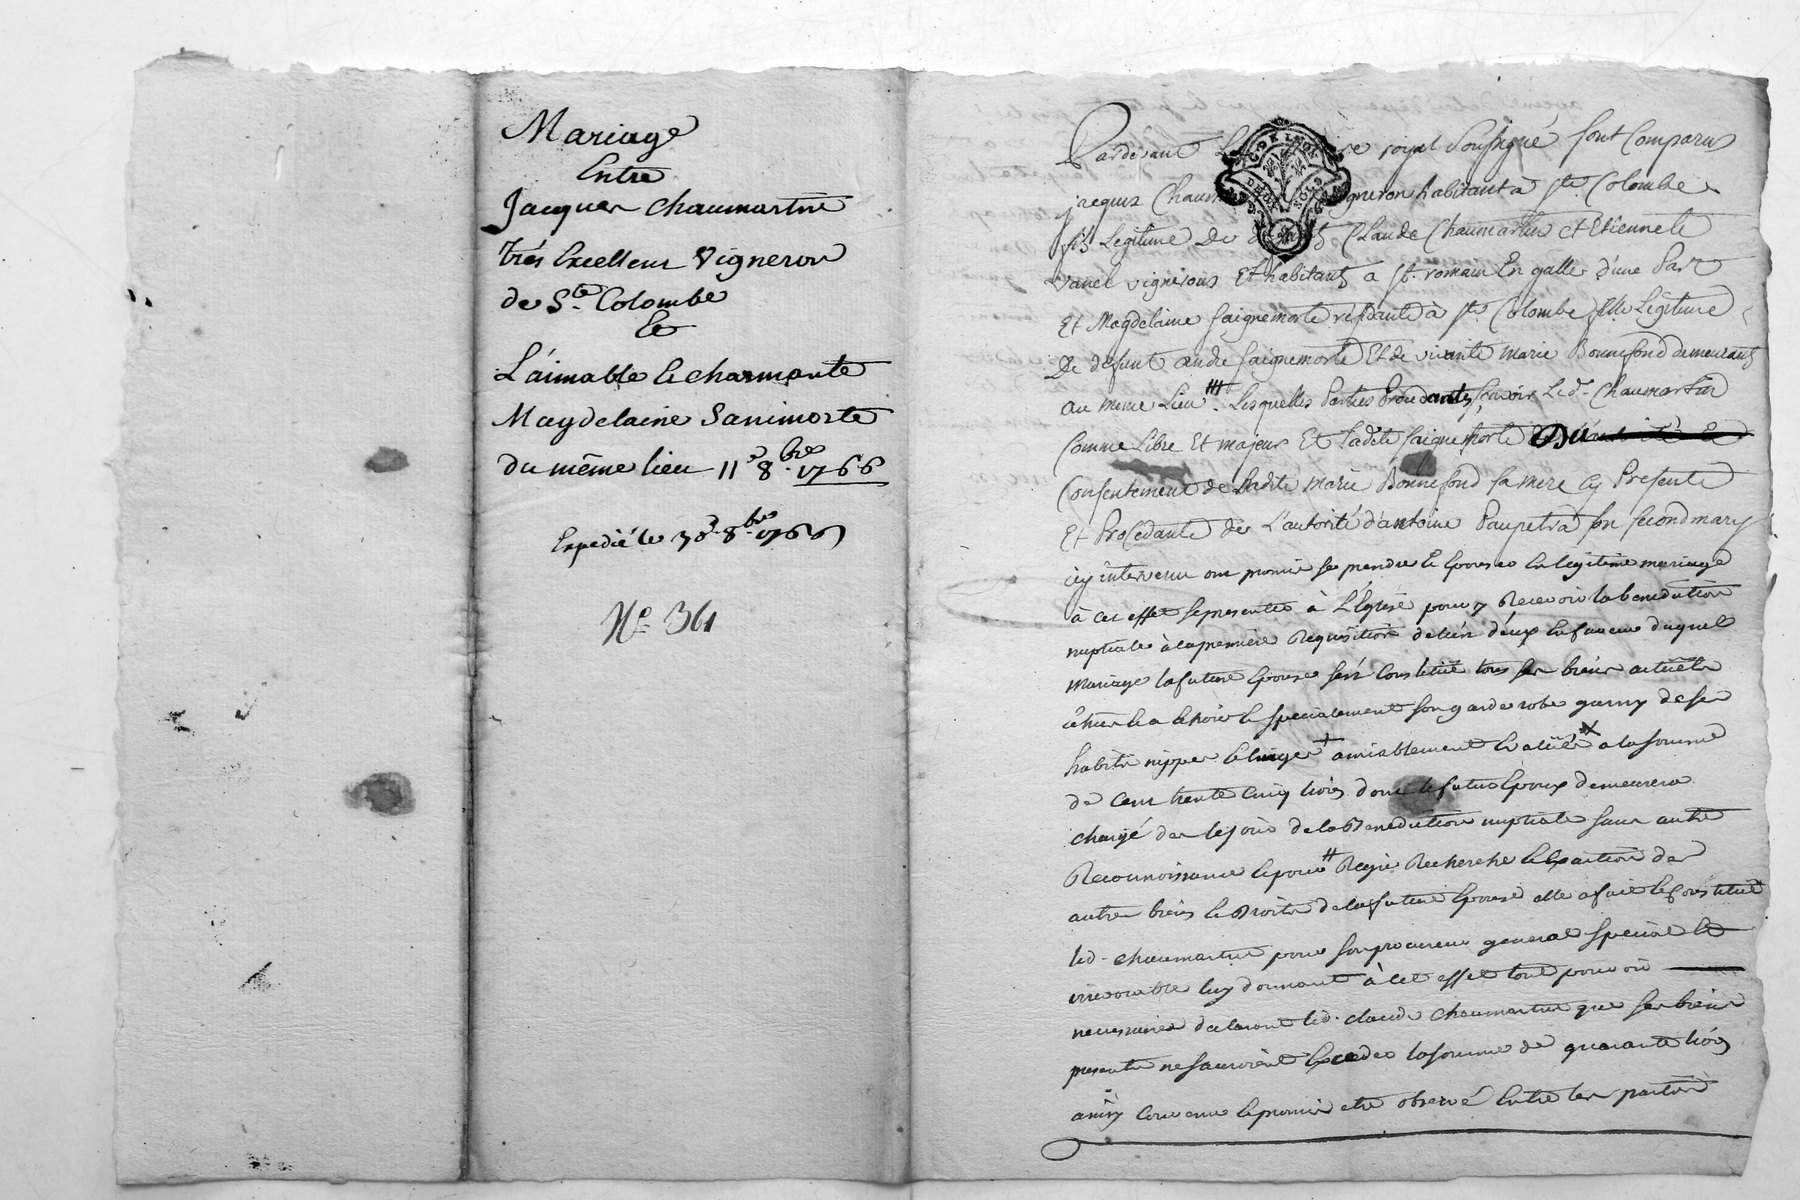 Mariage
Entre
Jacques Chaumartin
très Excellent Vigneron
de Ste. Colombe
Et
L'aimable le charmante
Magdelaine Sanimorte
du même lieu 11e 8bre 1766
Expedié le 30 8bre 1766
No. 361
Pardevant Le royal Soussigné sont Comparus
jacques Chaum gneron habitant a Ste. Colombe
fils Legitime De Claude Chaumartin et Etiennete
vanel vignerons Et habitants a St. romain En galle d'une Part
Et Magdelaine saignemorte residante à Ste. Colombe fille Legitime
De defunt andre saignemorte Et de vivante Marie Bonnefond demeurants
au meme Lieu Lesquelles Parties Procedantes, sçavoir Led. Chaumartin
Comme Libre Et majeur Et Ladite saignemorte Du
Consentement de Ladite Marie Bonnefond sa mere Cy Presente
Et Procedante de L'autorité d'antoine Paupetra son second mary
icy intervenu ont promis se prendre & Epouser En legitime mariage
à cet effet se presenter à L'Eglise pour y Recevoir la benediction
nuptiale à la premiere Requisition de l'un d'eux En faveur duquel
Mariage la future Epouse s'est Constitué tous ses biens actuels
Echus & a Echoir & specialement son garderobe garny de ses
habits nippes & linges + amiablement Evalués X a la somme
de Cent trente Cinq livres dont le futur Epoux demeurera
chargé des le jour de la Benediction nuptiale sans autre
Reconnoissance & pour # Regir Recherche & Exaction des
autres biens & Droits de la future Epouse elle a fait & Constitué
led. Chaumartin pour son procureur general special &
irrevocable luy donnant à cet effet tout pouvoir
necessaire declarant led. claude Chaumartin que ses biens
presents ne sauroient Exceder la somme de quarante livres
ainsy Convenu & promis etre observé Entre les parties